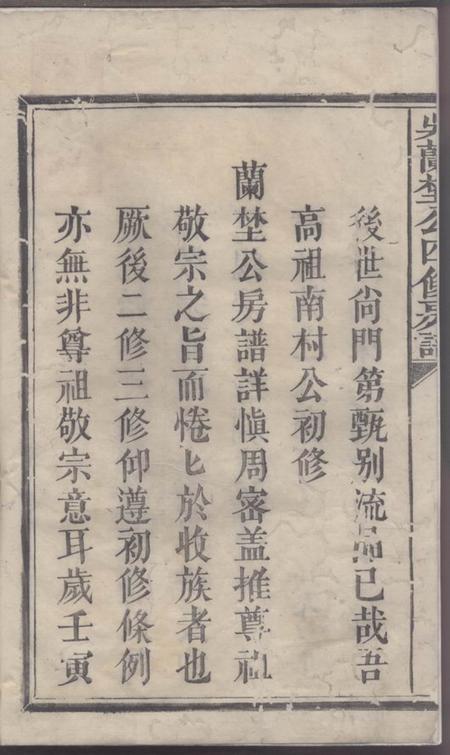 吳蘭埜公四修房譜
後世尙門第甄别流品已哉吾
高祖南村公初修
蘭埜公房譜詳慎周密盖推尊祖
敬宗之旨而惓匕於收族者也
厥後二修三修仰遵初修條例
亦無非尊祖敬宗意耳歲壬寅